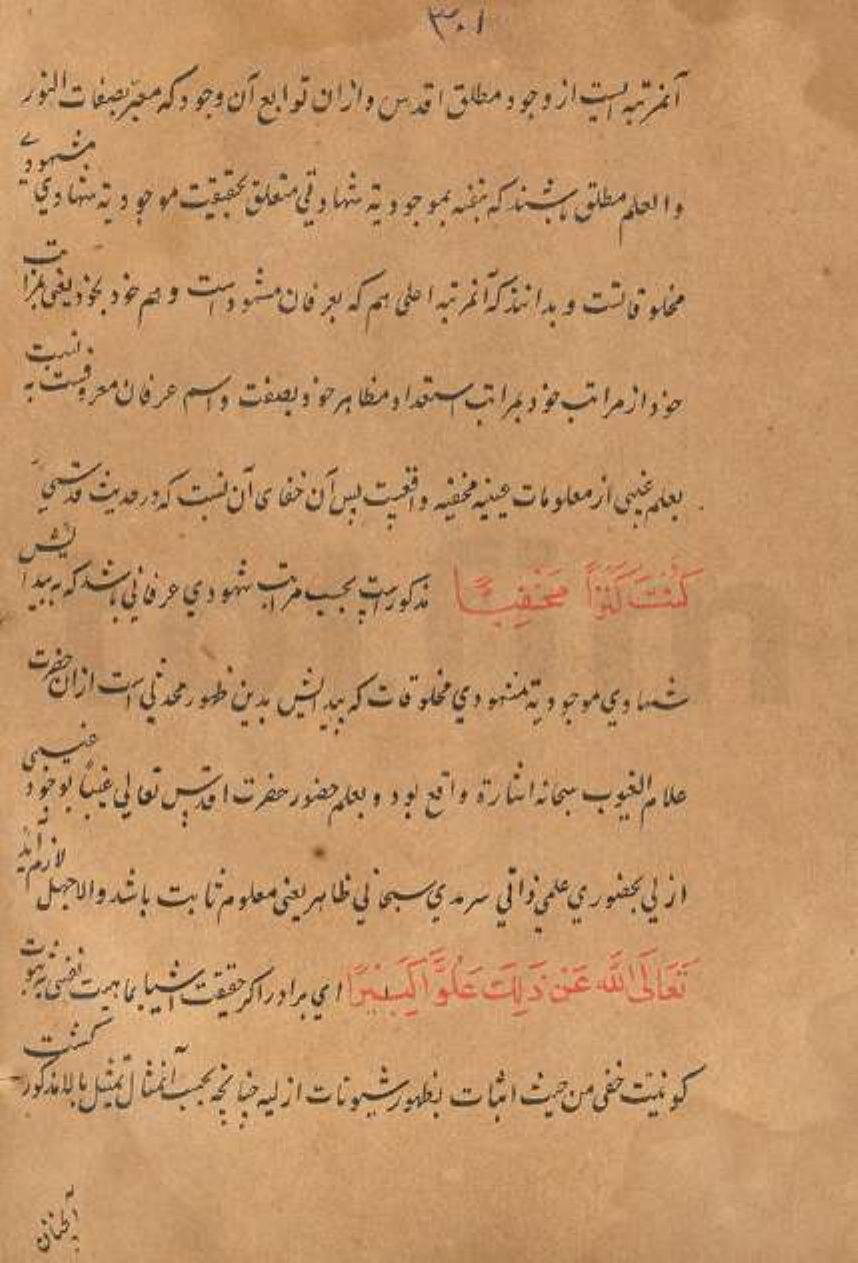 ۳۰۱
آنمرتبه ایست از وجود مطلق اقدس و ازان توابع آن وجود که معبر بصفات النور
والعلم مطلق باشند که بنفسه بموجودیة شهادتی متعلق بحقیقت موجودیة شهادی مشهودی
مخلوقاتست و بدانند که آنمرتبه اعلی هم که بعرفان مشهود است و هم خود بخود یعنی بمراتب
خود از مراتب خود بمراتب استعداد مظاهر خود بصفت و اسم عرفان معروفست به نسبت
بعلم غیبی از معلومات عینیه مخفیه واقعیت پس آن خفای آن نسبت که در حدیث قدسی
كُنْتُ كَنْزاً مَخْفِيًّا مذکورست بحسب مراتب شهودی عرفانی باشد که به پیدایش
شهادی موجودیة مشهودی مخلوقات که پیدایش بدین ظهور محدثی است ازان حضرت
علام الغیوب سبحانه اشارة واقع بود و بعلم حضور حضرت اقدس تعالی غیباً بوجود غیبی
ازلی بحضوری علمی ذاتی سرمدی سبحانی ظاهر یعنی معلوم ثابت باشد والا جهل لازم آید
تَعَالَى اللَّه عَنْ ذَلِكَ عُلُوًّا كَبِيْرًا ای برادر اگر حقیقت اشیا بماهیت نفسی ثبوت
کونیت خفی من حیث اثبات بظهور شیونات ازلیه چنانچه بحسب آنمثال تمثیل بالا مذکور گشت